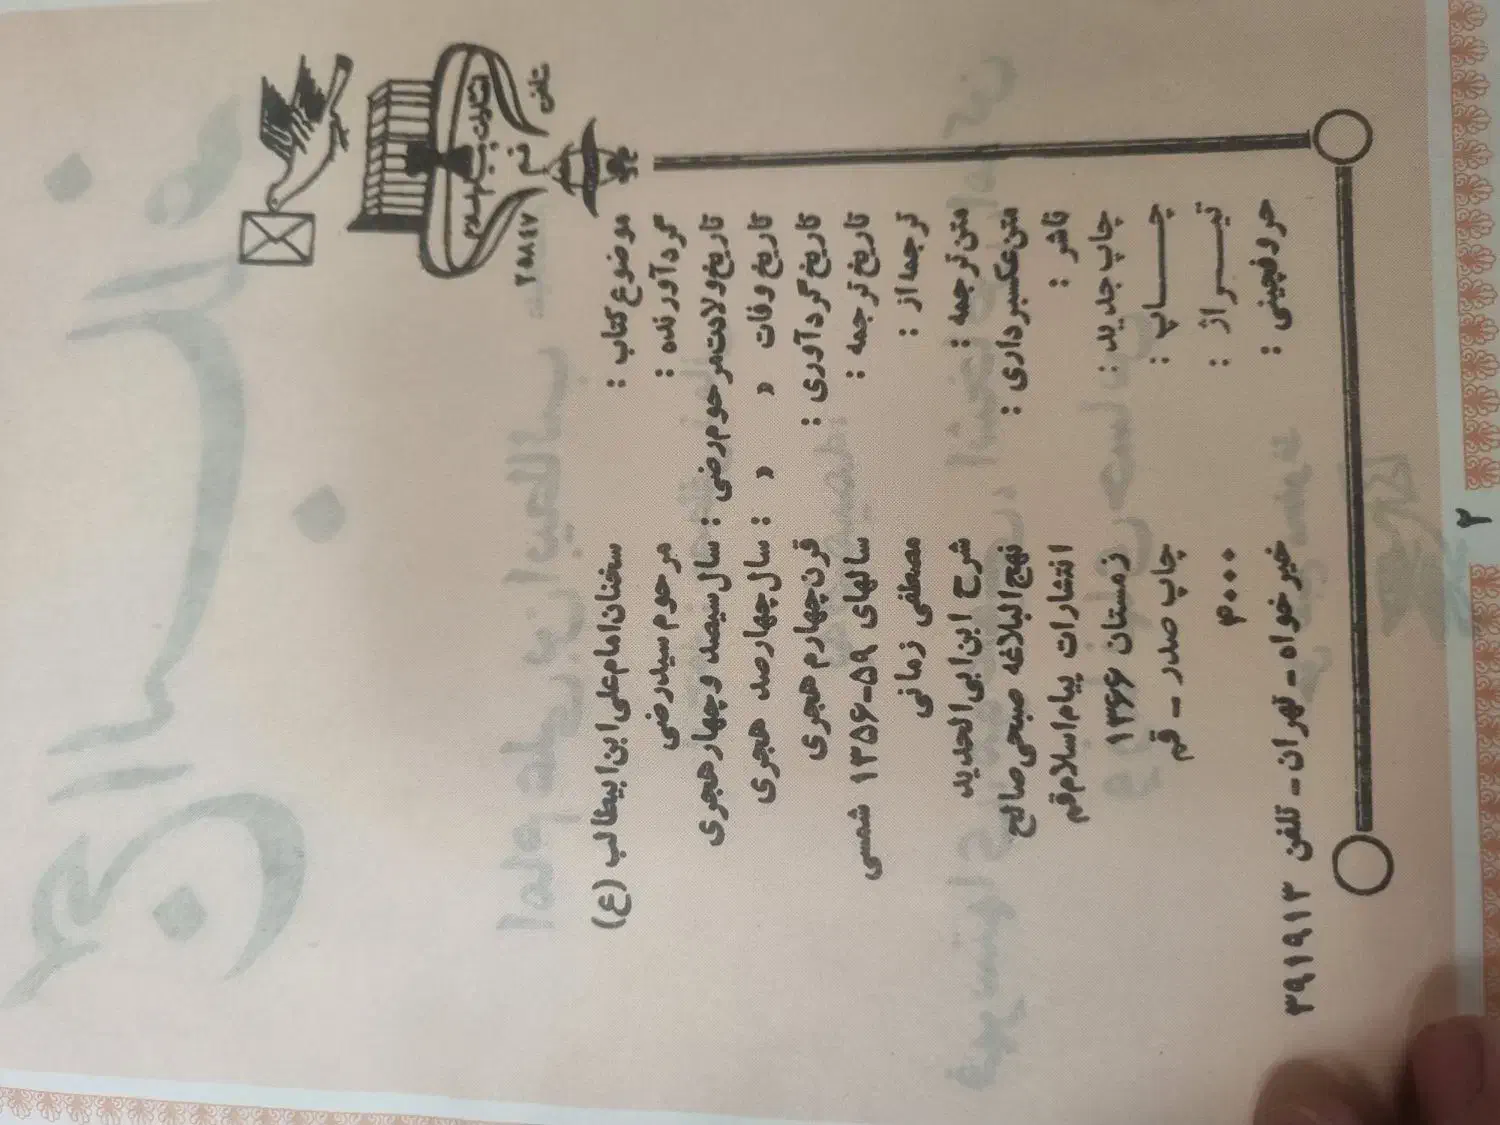 انتشارات پیام اسلام
قم
تلفن ۲۵۸۴۷
موضوع کتاب : سخنان امام علی ابن ابیطالب (ع)
گردآورنده : مرحوم سید رضی
تاریخ ولادت مرحوم رضی : سال سیصد و چهار هجری
تاریخ وفات » » : سال چهارصد هجری
تاریخ گردآوری : قرن چهارم هجری
تاریخ ترجمه : سالهای ۵۹-۱۳۵۶ شمسی
ترجمه از : مصطفی زمانی
متن ترجمه : شرح ابن ابی الحدید
متن عکسبرداری : نهج البلاغه صبحی صالح
ناشر : انتشارات پیام اسلام قم
چاپ جدید : زمستان ۱۳۶۶
چاپ : چاپ صدر - قم
تیراژ : ۳۰۰۰۰
حروفچینی : خیرخواه - تهران - تلفن ۳۹۱۹۱۳
۲